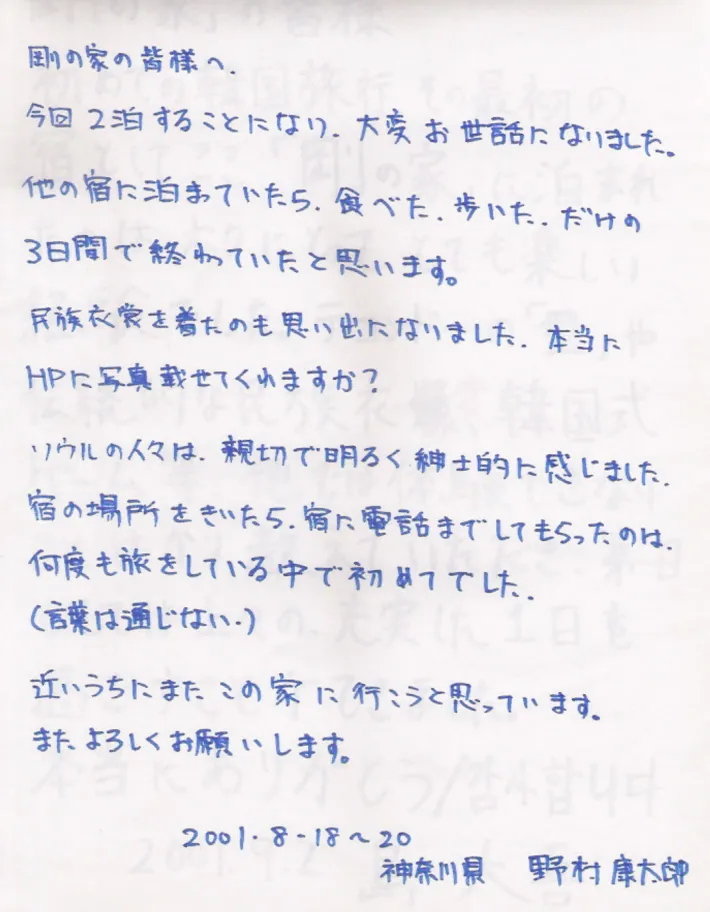 剛の家の皆様へ.
今回 2泊することになり. 大変 お世話になりました。
他の宿に泊まっていたら. 食べた. 歩いた. だけの
3日間で終わっていたと思います。
民族衣裳を着たのも思い出になりました. 本当に
HPに写真載せてくれますか?
ソウルの人々は. 親切で明るく紳士的に感じました.
宿の場所をきいたら. 宿に電話までしてもらったのは.
何度も旅をしている中で初めてでした.
(言葉は通じない.)
近いうちにまた この家 に 行こうと思っています。
またよろしくお願いします。
2001. 8 - 18 ~ 20
神奈川県 野村康太郎